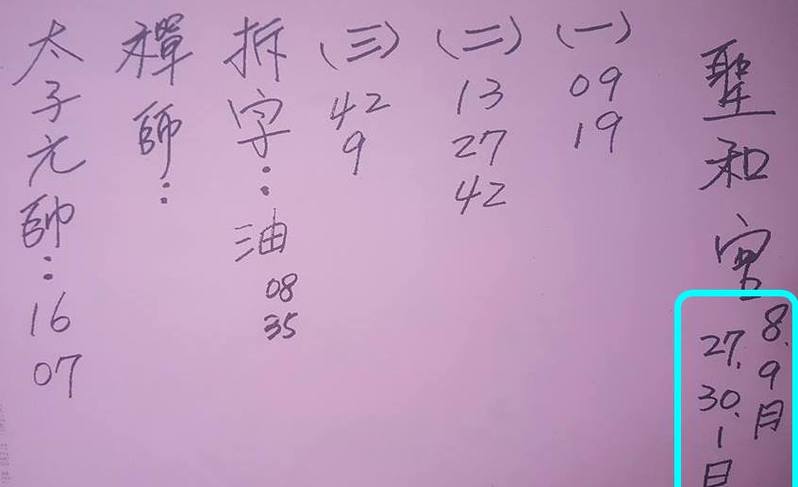 聖和宮
8.9月
27.30.1日
(一)
09
19
(二)
13
27
42
(三)
42
9
拆字：油
08
35
禪師：
太子元帥：16
07